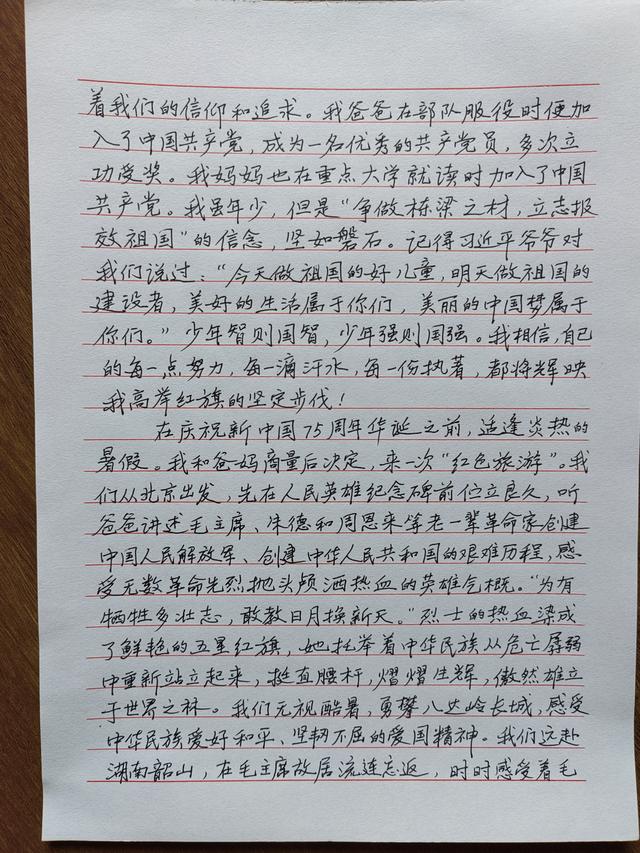 着我们的信仰和追求。我爸爸在部队服役时便加
入了中国共产党，成为一名优秀的共产党员，多次立
功受奖。我妈妈也在重点大学就读时加入了中国
共产党。我虽年少，但是“争做栋梁之材，立志报
效祖国”的信念，坚如磐石。记得习近平爷爷对
我们说过：“今天做祖国的好儿童，明天做祖国的
建设者，美好的生活属于你们，美丽的中国梦属于
你们。”少年智则国智，少年强则国强。我相信，自己
的每一点努力，每一滴汗水，每一份执著，都将辉映
我高举红旗的坚定步伐！
在庆祝新中国75周年华诞之前，适逢炎热的
暑假。我和爸妈商量后决定，来一次“红色旅游”。我
们从北京出发，先在人民英雄纪念碑前伫立良久，听
爸爸讲述毛主席、朱德和周恩来等老一辈革命家创建
中国人民解放军、创建中华人民共和国的艰难历程，感
受无数革命先烈抛头颅洒热血的英雄气概。“为有
牺牲多壮志，敢教日月换新天。”烈士的热血染成
了鲜艳的五星红旗，她托举着中华民族从危亡孱弱
中重新站立起来，挺直腰杆，熠熠生辉，傲然雄立
于世界之林。我们无视酷暑，勇攀八达岭长城，感受
中华民族爱好和平、坚韧不屈的爱国精神。我们远赴
湖南韶山，在毛主席故居流连忘返，时时感受着毛